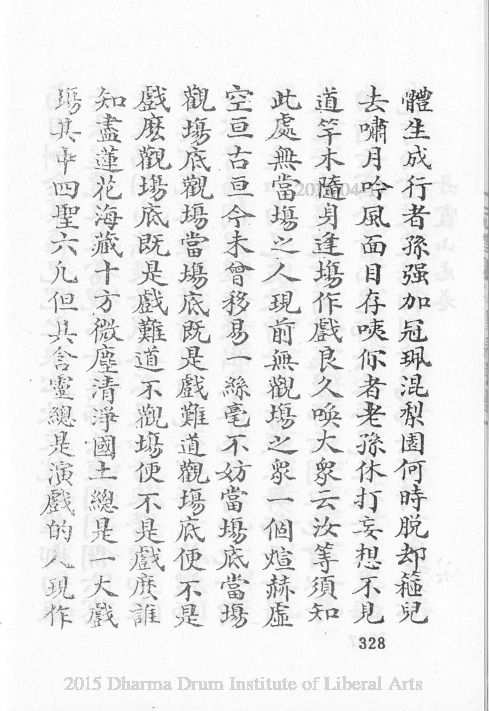 體生成行者孫强加冠珮混梨園何時脱却箍兒
去嘯月吟風面目存咦你者老孫休打妄想不見
道竿木隨身逢塲作戲良久喚大衆云汝等須知
此處無當塲之人現前無觀塲之衆一個煊赫虛
空亘古亘今未曾移易一絲毫不妨當塲底當塲
觀塲底觀塲當塲底既是戲難道觀塲底便不是
戲麽觀塲底既是戲難道不觀塲便不是戲麽誰
知盡蓮花海藏十方微塵清淨國土總是一大戲
塲其中四聖六凡但具含靈總是演戲的人現作
328
2015 Dharma Drum Institute of Liberal Arts